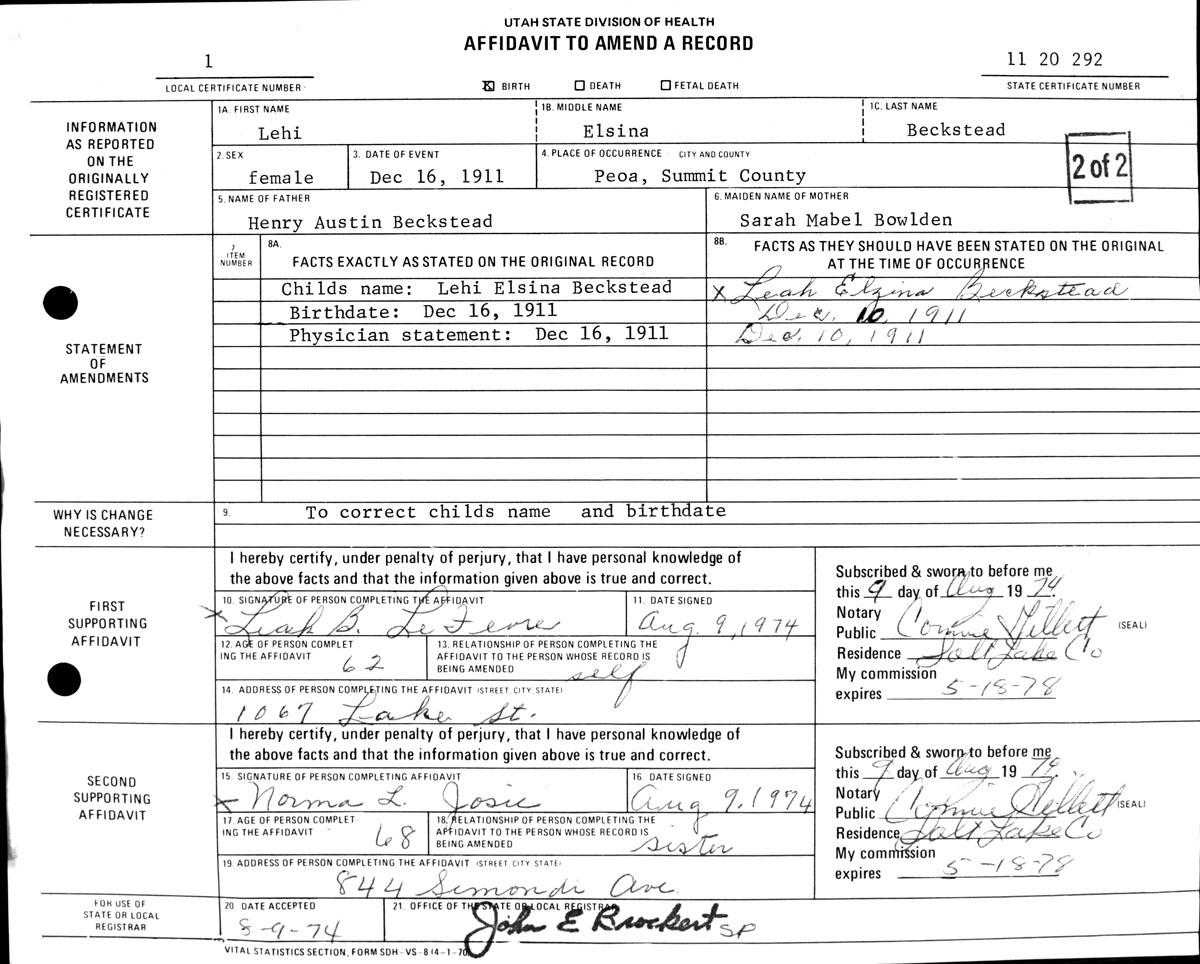 UTAH STATE DIVISION OF HEALTH
AFFIDAVIT TO AMEND A RECORD
1
11 20 292
LOCAL CERTIFICATE NUMBER
X BIRTH DEATH FETAL DEATH
STATE CERTIFICATE NUMBER
INFORMATION
AS REPORTED
ON THE
ORIGINALLY
REGISTERED
CERTIFICATE
1A. FIRST NAME
Lehi
1B. MIDDLE NAME
Elsina
1C. LAST NAME
Beckstead
2. SEX
female
3. DATE OF EVENT
Dec 16, 1911
4. PLACE OF OCCURRENCE CITY AND COUNTY
Peoa, Summit County
2 of 2
5. NAME OF FATHER
Henry Austin Beckstead
6. MAIDEN NAME OF MOTHER
Sarah Mabel Bowlden
STATEMENT
OF
AMENDMENTS
7
ITEM
NUMBER
8A.
FACTS EXACTLY AS STATED ON THE ORIGINAL RECORD
8B. FACTS AS THEY SHOULD HAVE BEEN STATED ON THE ORIGINAL
AT THE TIME OF OCCURRENCE
Childs name: Lehi Elsina Beckstead
X Leah Elzina Beckstead
Birthdate: Dec 16, 1911
Dec. 10, 1911
Physician statement: Dec 16, 1911
Dec. 10, 1911
WHY IS CHANGE
NECESSARY?
9. To correct childs name and birthdate
FIRST
SUPPORTING
AFFIDAVIT
I hereby certify, under penalty of perjury, that I have personal knowledge of
the above facts and that the information given above is true and correct.
10. SIGNATURE OF PERSON COMPLETING THE AFFIDAVIT
X Leah B. LeFevre
11. DATE SIGNED
Aug. 9, 1974
12. AGE OF PERSON COMPLET
ING THE AFFIDAVIT
62
13. RELATIONSHIP OF PERSON COMPLETING THE
AFFIDAVIT TO THE PERSON WHOSE RECORD IS
BEING AMENDED
self
14. ADDRESS OF PERSON COMPLETING THE AFFIDAVIT (STREET, CITY, STATE)
1067 Lake St.
Subscribed & sworn to before me
this 9 day of Aug 19 74.
Notary
Public Connie (SEAL)
Residence Salt Lake Co
My commission
expires 5-18-78
SECOND
SUPPORTING
AFFIDAVIT
I hereby certify, under penalty of perjury, that I have personal knowledge of
the above facts and that the information given above is true and correct.
15. SIGNATURE OF PERSON COMPLETING AFFIDAVIT
X Norma L. Josie
16. DATE SIGNED
Aug 9, 1974
17. AGE OF PERSON COMPLET
ING THE AFFIDAVIT
68
18. RELATIONSHIP OF PERSON COMPLETING THE
AFFIDAVIT TO THE PERSON WHOSE RECORD IS
BEING AMENDED
sister
19. ADDRESS OF PERSON COMPLETING THE AFFIDAVIT (STREET, CITY, STATE)
844 Simondi Ave.
Subscribed & sworn to before me
this 9 day of Aug 19 74.
Notary
Public Connie (SEAL)
Residence Salt Lake Co
My commission
expires 5-18-78
FOR USE OF
STATE OR LOCAL
REGISTRAR
20. DATE ACCEPTED
8-9-74
21. OFFICE OF THE STATE OR LOCAL REGISTRAR
John E Brockert SP
VITAL STATISTICS SECTION, FORM SDH-VS-8 (4-1-70)